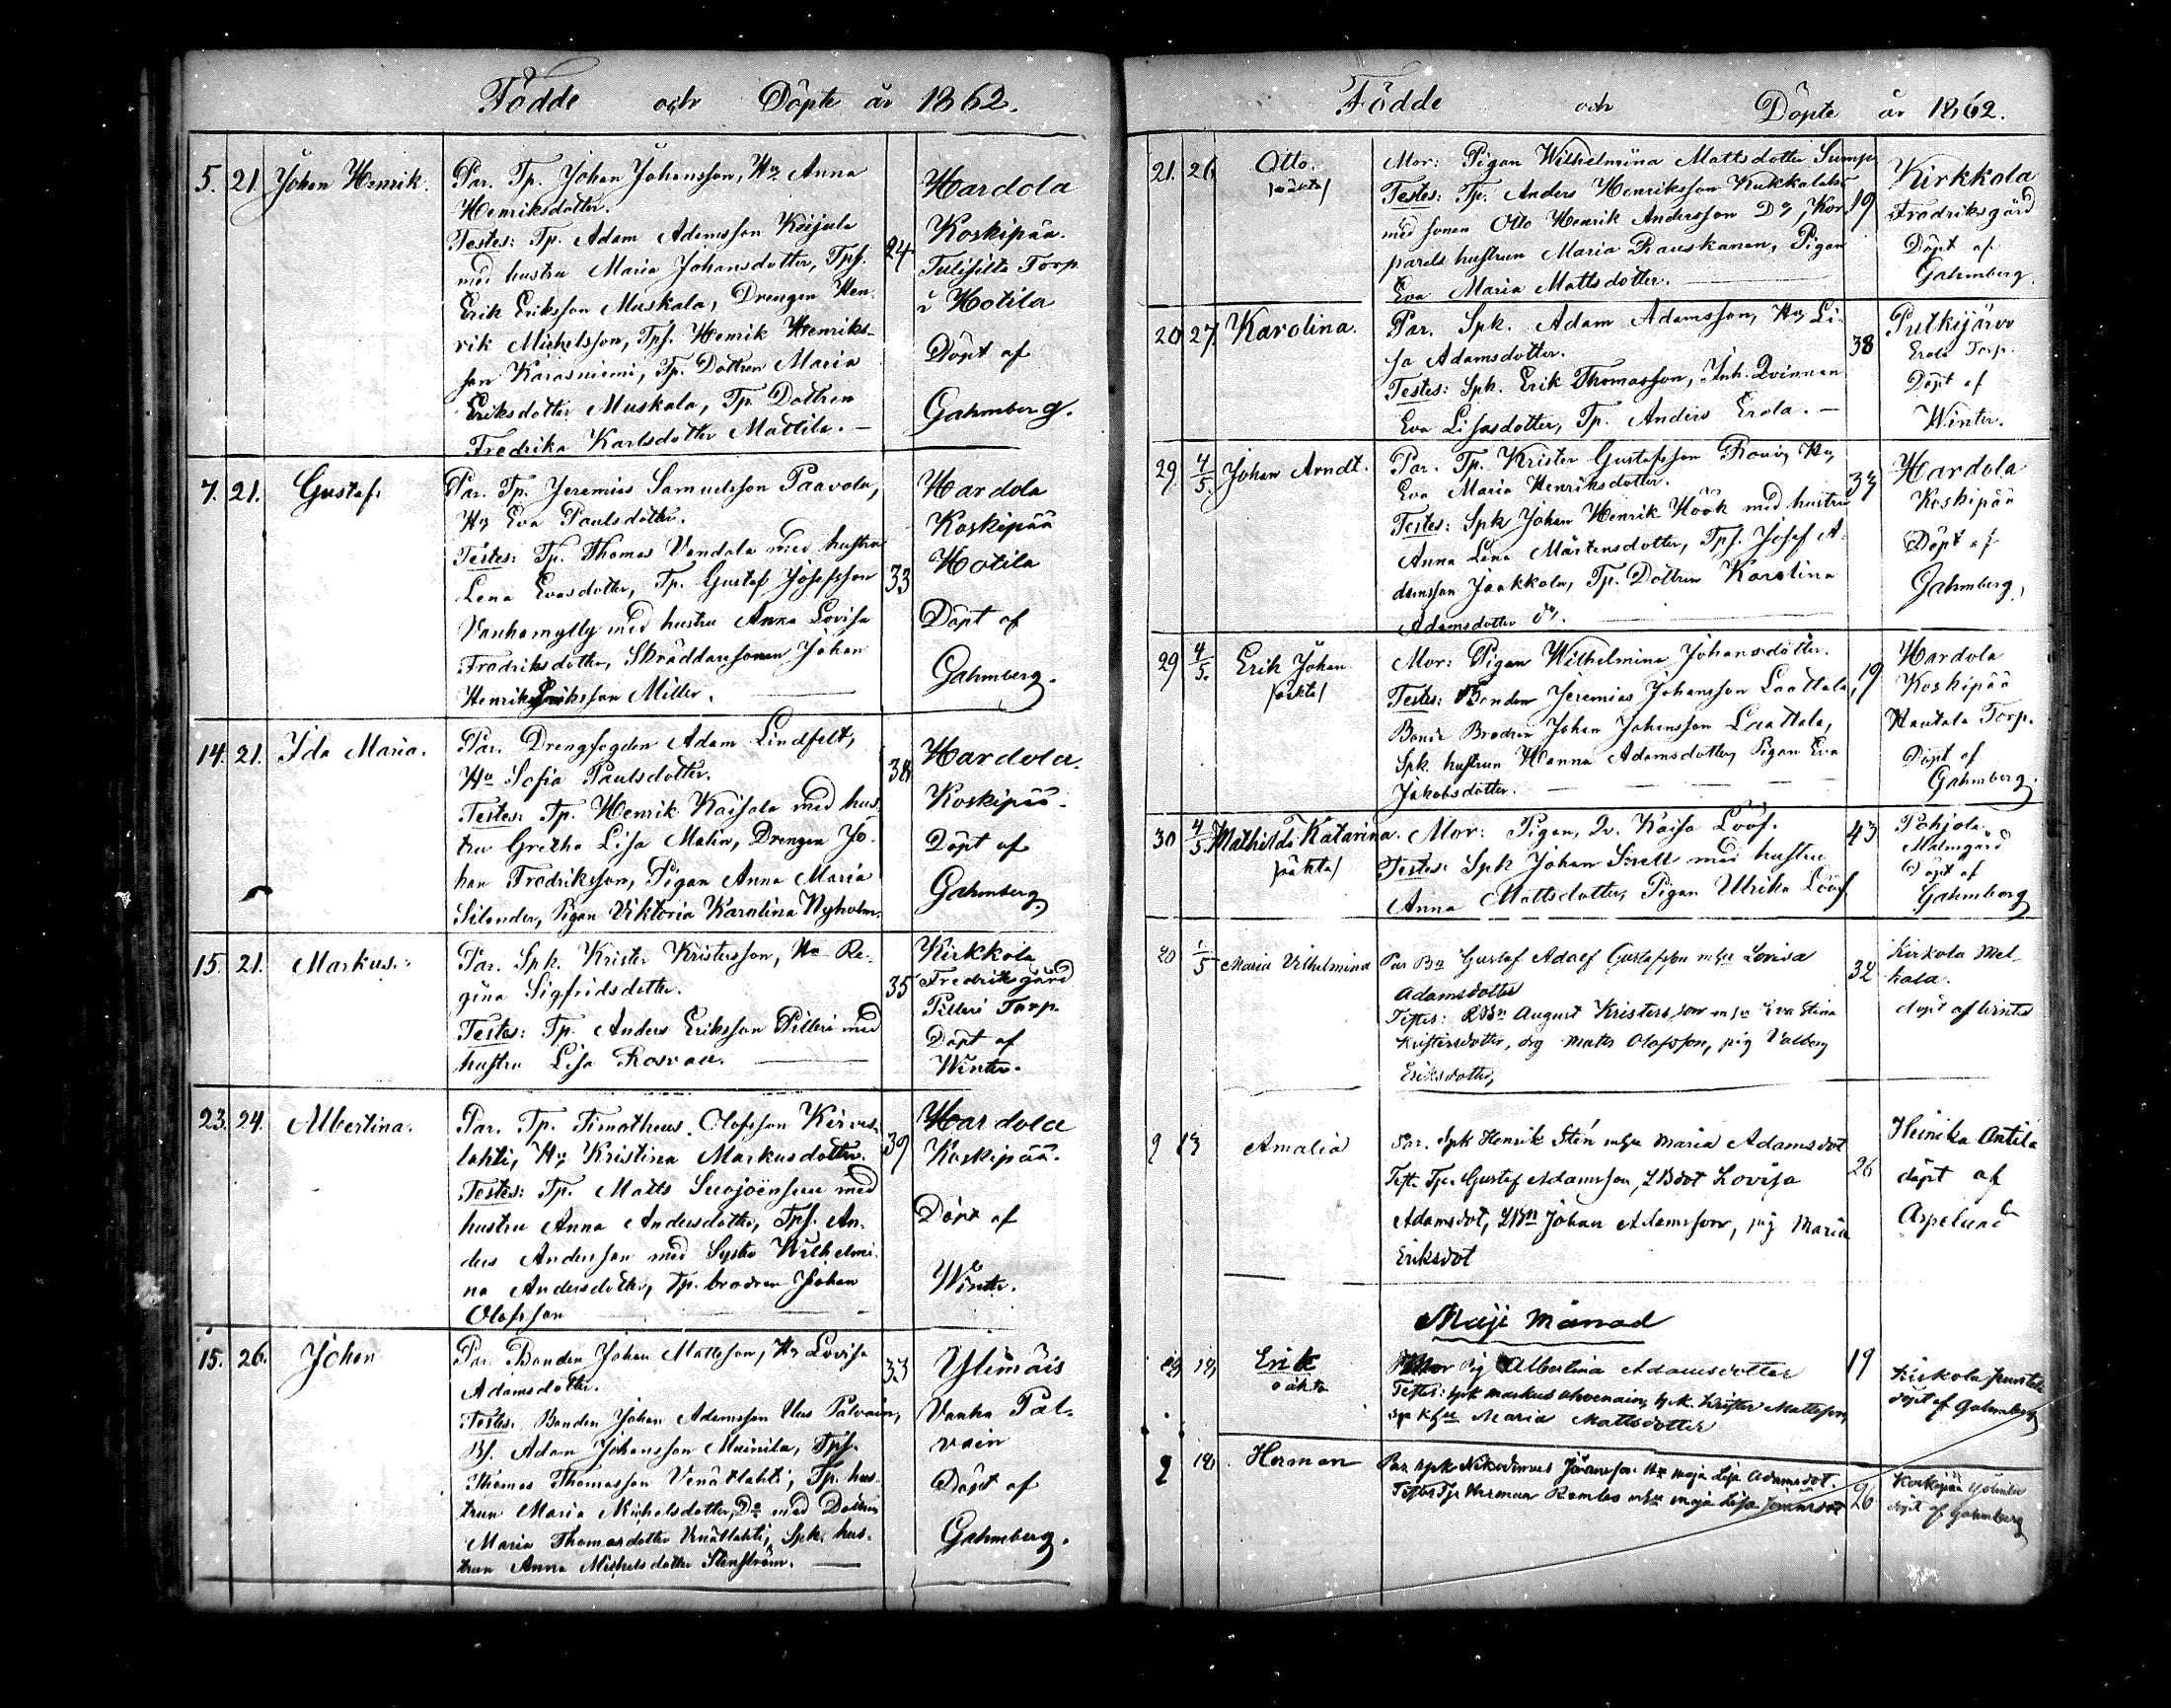 Födde och Döpte år 1862.
5. 21 Johan Henrik. Par. Tp. Johan Johansson, Hu Anna
Henriksdotter.
Testes: Tp. Adam Adamsson Keijula
med hustru Maria Johansdotter, Tps.
Erik Eriksson Muskala, Drengen Hen-
rik Michelsson, Tps. Henrik Henriks-
son Karasniemi, Tp. Dottren Maria
Eriksdotter Muskala, Tp. Dottren
Fredrika Karlsdotter Mattila. —
24
Hardola
Koskipää.
Torp
i Hotila
Döpt af
Gahmberg.
7. 21. Gustaf. Par. Tp. Jeremias Samuelsson Paavola,
Hu Eva Paulsdotter.
Testes: Tp. Thomas Vendala med hustru
Lena Evasdotter, Tp. Gustaf Josefsson
Vanhamylly med hustru Anna Lovisa
Fredriksdotter, Skräddaresonen Johan
Henrik Eriksson Miller.
33
Hardola
Koskipää
Hotila
Döpt af
Gahmberg.
14. 21. Ida Maria. Par. Drengfogden Adam Lindfelt,
Hu Sofia Paulsdotter.
Testes: Tp. Henrik Kaisala med hus-
tru Gretha Lisa Malin, Drengen Jo-
han Fredriksson, Pigan Anna Maria
Silander, Pigan Viktoria Karolina Nyholm.
38
Hardola.
Koskipää.
Döpt af
Gahmberg.
15. 21. Markus. Par. Spk. Krister Kristersson, Hu Re-
gina Sigfridsdotter.
Testes: Tp. Anders Eriksson Pilleri med
hustru Lisa Rosvall.
35
Kirkkola
Fredriksgård
Pilleri Torp.
Döpt af
Winter.
23. 24. Albertina. Par. Tp. Timotheus Olofsson Kirves-
lahti, Hu Kristina Markusdotter.
Testes: Tp. Matts Suojoensuu med
hustru Anna Andersdotter, Tps. An-
ders Andersson med Syster Wilhelmi-
na Andersdotter, Tp. brodren Johan
Olofsson
39
Hardola
Koskipää.
Döpt af
Winter.
15. 26. Johan Par. Bonden Johan Mattsson, Hu Lovisa
Adamsdotter.
Testes: Bonden Johan Adamsson Uus Palvain,
Bs. Adam Johansson Mainila, Tps.
Thomas Thomasson Venätlahti, Tp. hus-
trun Maria Michelsdotter, Do med Dottren
Maria Thomasdotter Venätlahti, Spk. hus-
trun Anna Michelsdotter Stenström. —
33
Ylimäis
Vanha Pal-
vain
Döpt af
Gahmberg.
Födde och Döpte år 1862.
21. 26. Otto. Mor: Pigan Wilhelmina Mattsdotter Sump
/oäkta/ Testes: Tp. Anders Henriksson Kukkalahti
med sonen Otto Henrik Andersson Do, Kor-
parals hustrun Maria Rauskanen, Pigan
Eva Maria Mattsdotter.
19
Kirkkola
Fredriksgård
Döpt af
Gahmberg.
20 27. Karolina. Par. Spk. Adam Adamsson, Hu Li-
sa Adamsdotter.
Testes: Spk. Erik Thomasson, Inh. Qvinnan
Eva Lisasdotter, Tp. Anders Erola. —
38
Putkijärvi
Erola Torp.
Döpt af
Winter.
29 4/5. Johan Arndt. Par. Tp. Krister Gustafsson Hu
Eva Maria Henriksdotter.
Testes: Spk Johan Henrik Höök med hustru
Anna Lena Mårtensdotter, Tps. Josef A-
damsson Jaakkola, Tp. Dottren Karolina
Adamsdotter Do.
33
Hardola
Koskipää
Döpt af
Gahmberg.
29 4/5. Erik Johan Mor: Pigan Wilhelmina Johansdotter.
/oäkta/ Testes: Bonden Jeremias Johansson Laattala,
Bonde Brodren Johan Johansson Laattala,
Spk. hustrun Hanna Adamsdotter, Pigan Eva
Jakobsdotter.
19
Hardola
Koskipää
Hautala Torp.
Döpt af
Gahmberg.
30 4/5. Mathilda Katarina. Mor: Pigan, Qv. Kaisa Lööf.
/oäkta/ Testes: Spk Johan Snell med hustru
Anna Mattsdotter, Pigan Ulrika Lööf
43
Pohjola.
Malmgård
Döpt af
Gahmberg
20 1/5 Maria Vilhelmina Par Bn Gustaf Adolf Gustafsson m hu Lovisa
Adamsdotter
Testes: August Kristersson m hu Eva Stina
Kristersdotter, drg Matts Olofsson, pig Valborg
Eriksdotter,
32
Kirkola Mel-
kola.
döpt af Winter
9 13 Amalia Par. Spk Henrik Stén m hu Maria Adamsdot
Test. Tp. Gustaf Adamsson, Lovisa
Adamsdot, Johan Adamsson, pig Maria
Eriksdot
26
Heinika Antila
döpt af
Aspelund
Maji Månad
Erik Mor Pig Albertina Adamsdotter
oäkta Testes: spk Markus Ahvenain, spk. Krister Mattsson,
Maria Mattsdotter
19
Kirkola
döpt af Gahmberg
2 18 Herman Par spk Nikodemus Hu Maja Lisa Adamsdot.
Testes Tp Herman m hu Maja Lisa
26
Koskipää
döpt af Gahmberg